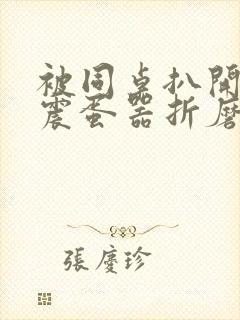 被同桌扒開
震蛋器折磨
張慶珍